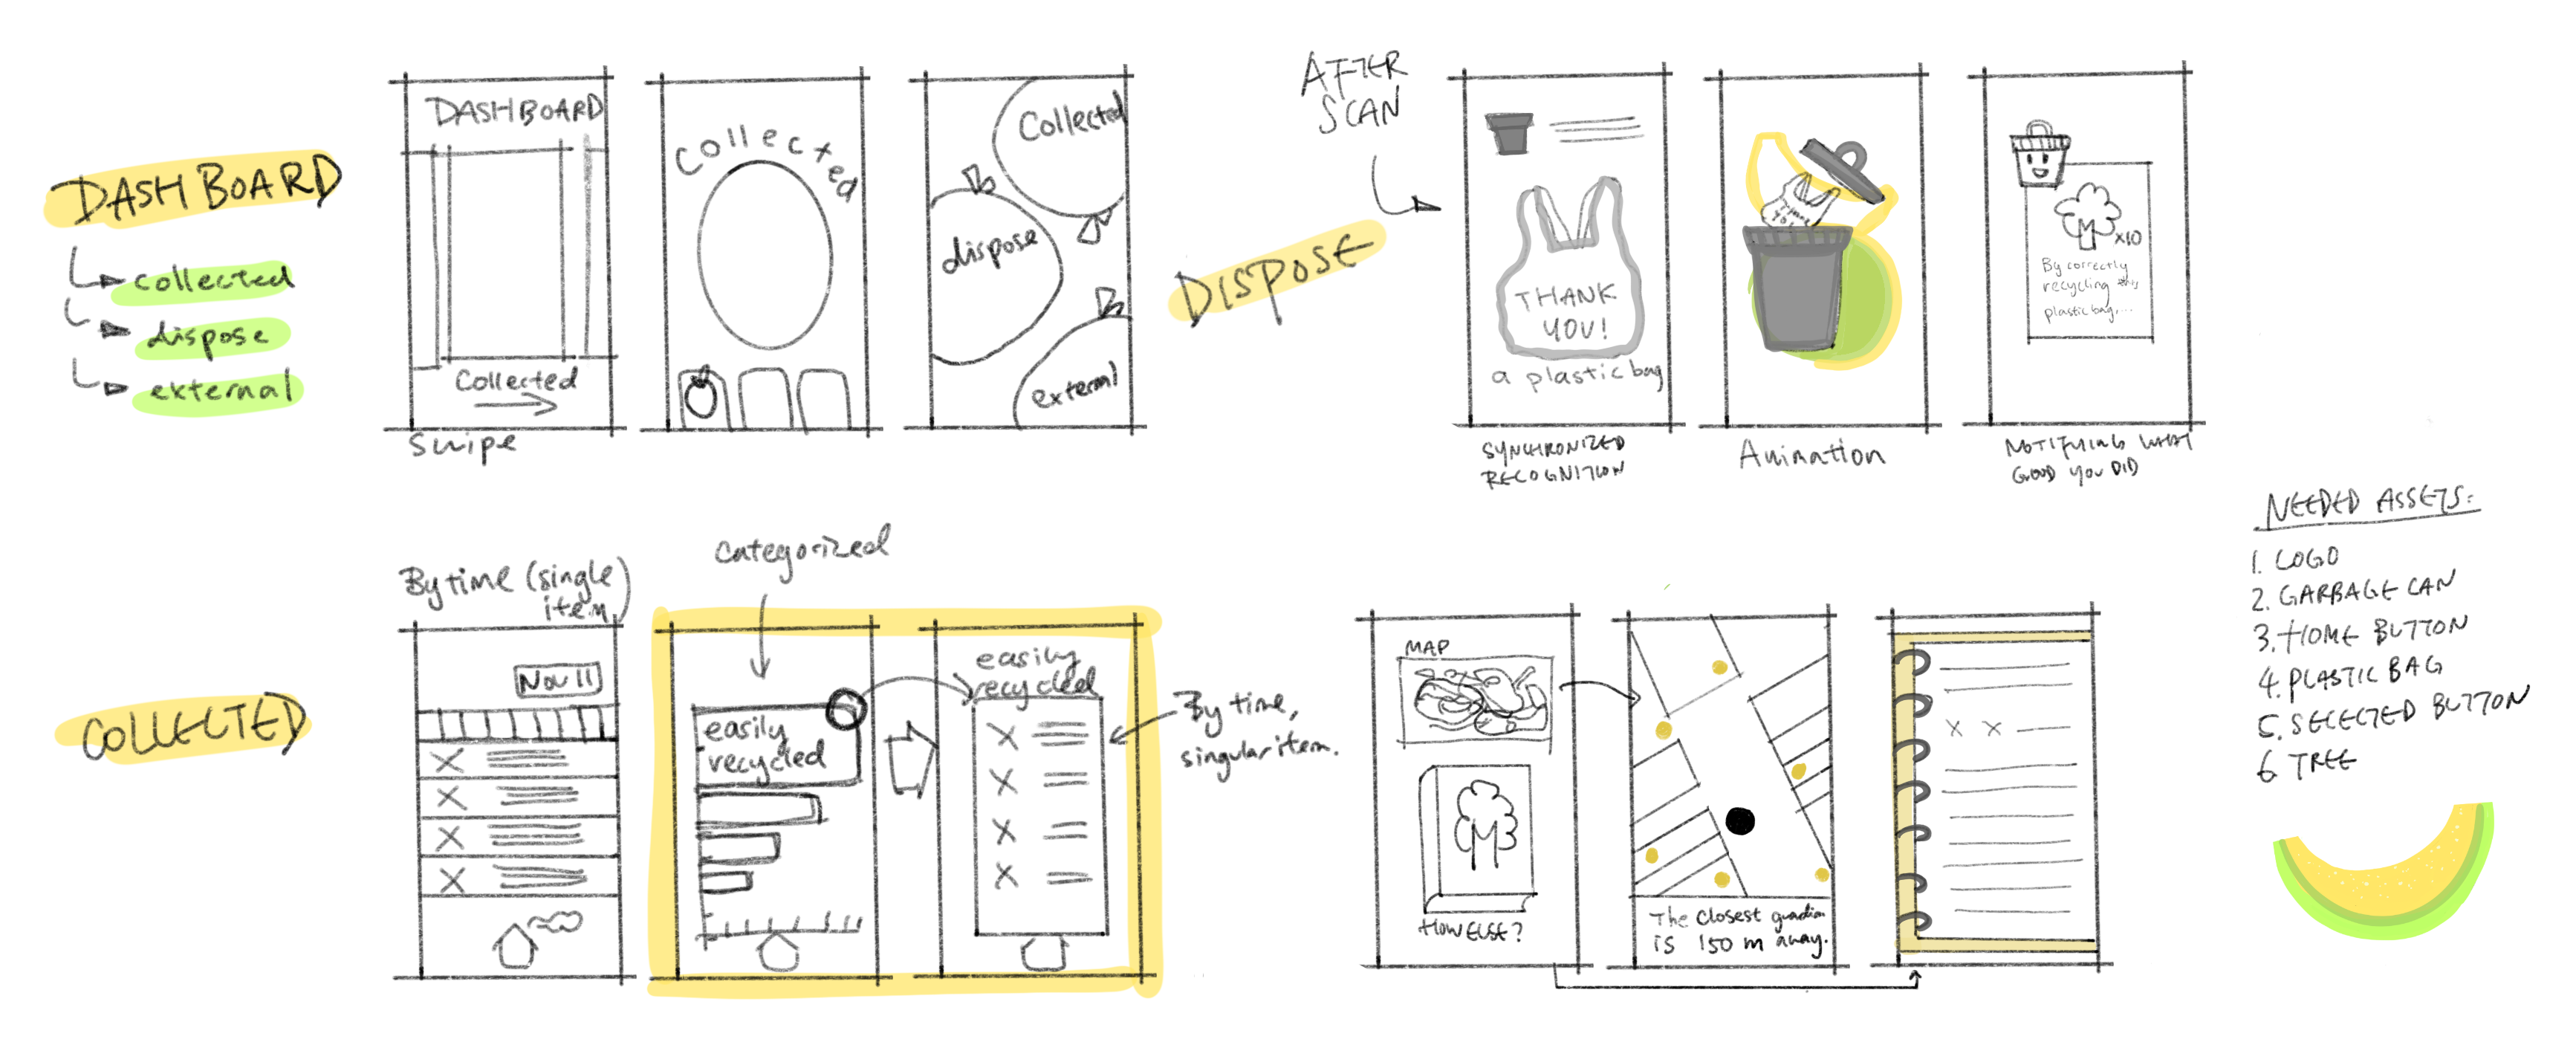 DASHBOARD
collected
dispose
external
DASHBOARD
Collected
Swipe
Collected
Collected
dispose
external
DISPOSE
AFTER
SCAN
THANK
YOU!
a plastic bag
SYNCHRONIZED
RECOGNITION
THANK
YOU
Animation
x10
By correctly
recycling this
plastic bag,...
NOTIFYING WHAT
GOOD YOU DID
COLLECTED
By time (single
item)
Nov 11
categorized
easily
recycled
easily
recycled
By time,
singular item.
MAP
HOW ELSE?
The closest guardian
is 150 m away.
NEEDED ASSETS:
1. LOGO
2. GARBAGE CAN
3. HOME BUTTON
4. PLASTIC BAG
5. SELECTED BUTTON
6 TREE